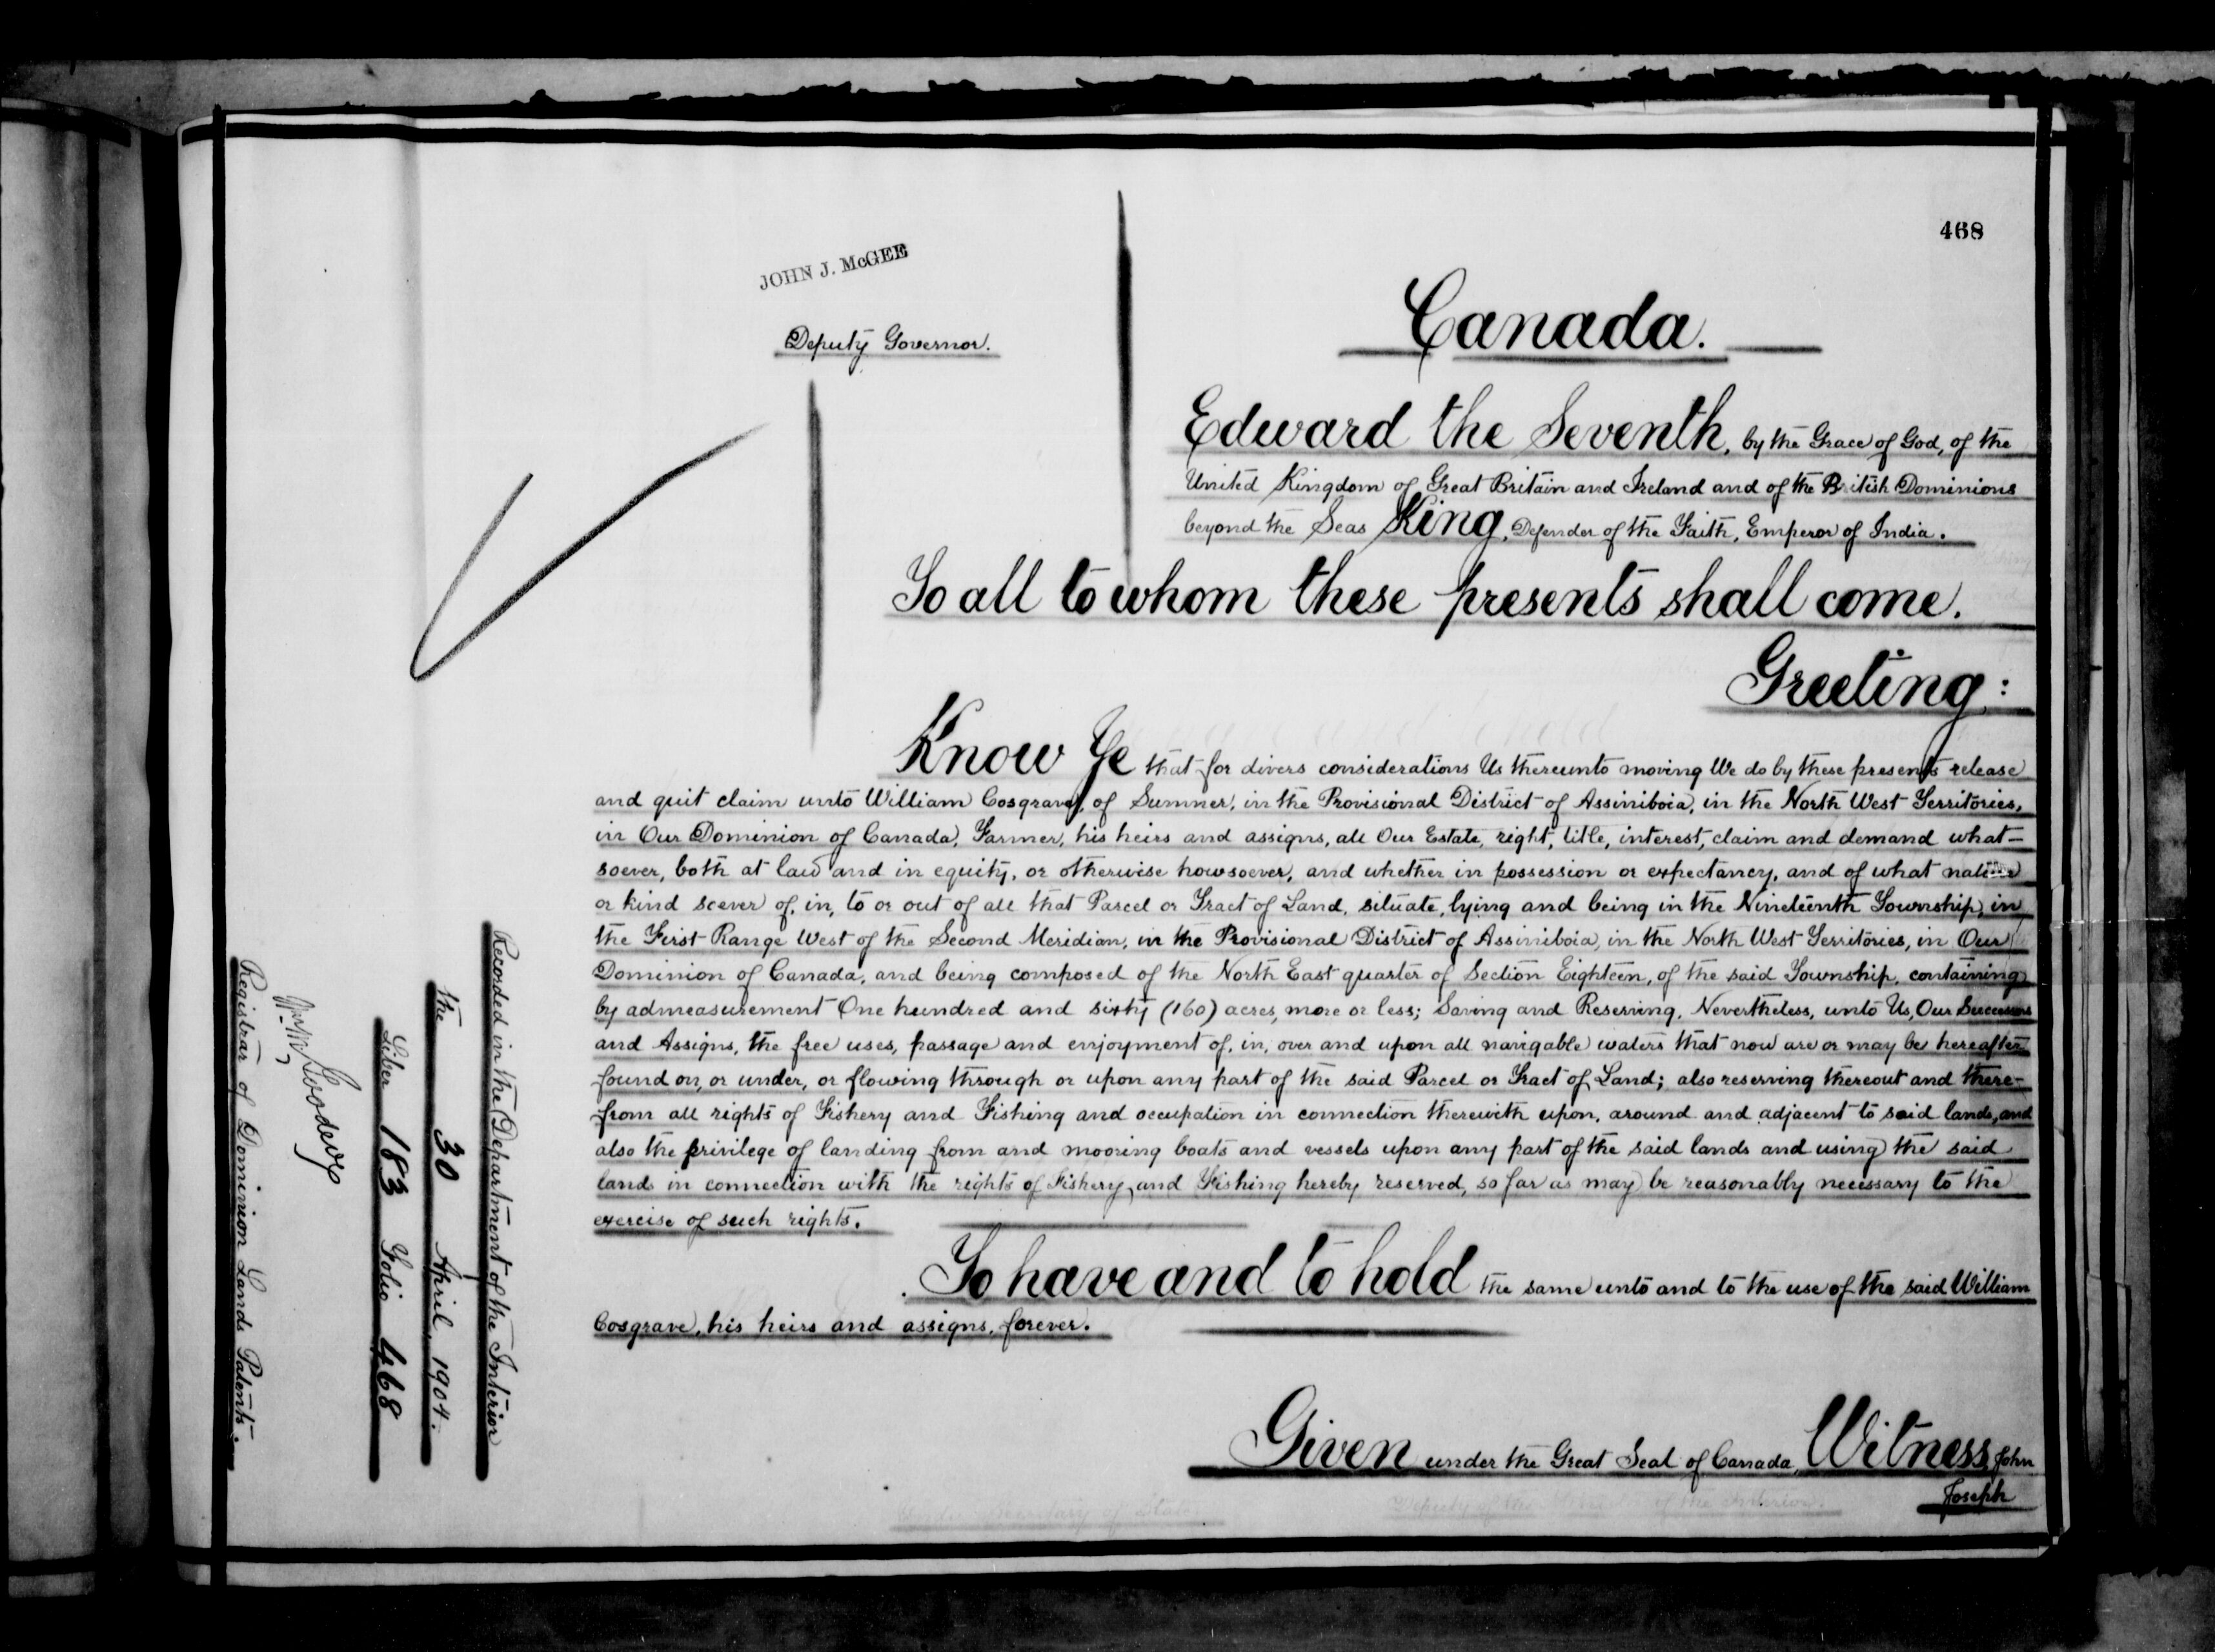 468
JOHN J. McGEE
Deputy Governor.
Canada.
Edward the Seventh, by the Grace of God, of the
United Kingdom of Great Britain and Ireland and of the British Dominions
beyond the Seas King, Defender of the Faith, Emperor of India.
To all to whom these presents shall come.
Greeting:
Know Ye that for divers considerations Us thereunto moving We do by these presents release
and quit claim unto William Cosgrave, of Sumner, in the Provisional District of Assiniboia, in the North West Territories,
in Our Dominion of Canada, Farmer, his heirs and assigns, all Our Estate, right, title, interest, claim and demand what-
soever, both at law and in equity, or otherwise howsoever, and whether in possession or expectancy, and of what nature
or kind soever of, in, to or out of all that Parcel or Tract of Land, situate, lying and being in the Nineteenth Township, in
the First Range West of the Second Meridian, in the Provisional District of Assiniboia, in the North West Territories, in Our
Dominion of Canada, and being composed of the North East quarter of Section Eighteen, of the said Township, containing
by admeasurement One hundred and sixty (160) acres, more or less; Saving and Reserving, Nevertheless, unto Us, Our Successors
and Assigns, the free uses, passage and enjoyment of, in, over and upon all navigable waters that now are or may be hereafter
found on, or under, or flowing through or upon any part of the said Parcel or Tract of Land; also reserving thereout and there-
from all rights of Fishery and Fishing and occupation in connection therewith upon, around and adjacent to said lands, and
also the privilege of landing from and mooring boats and vessels upon any part of the said lands and using the said
lands in connection with the rights of Fishery and Fishing hereby reserved, so far as may be reasonably necessary to the
exercise of such rights.
To have and to hold the same unto and to the use of the said William
Cosgrave, his heirs and assigns, forever.
Given under the Great Seal of Canada, Witness, John
Joseph
Recorded in the Department of the Interior
the 30 April, 1904.
Liber 183 Folio 468
Registrar of Dominion Lands Patents.